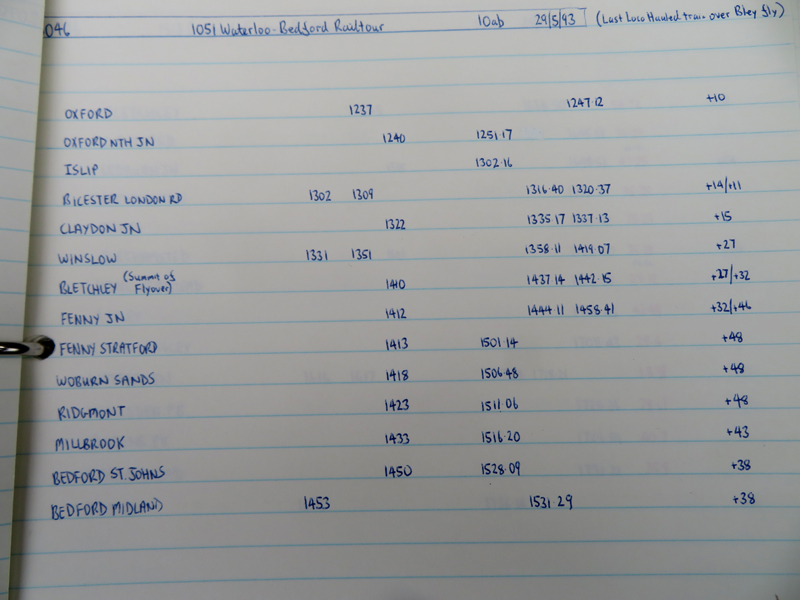 046 1051 Waterloo-Bedford Railtour 10ab 29/5/93 (Last Loco Hauled train over Bley fly)
OXFORD 1237 1247.12 +10
OXFORD NTH JN 1240 1251.17
ISLIP 1302.16
BICESTER LONDON RD 1302 1309 1316.40 1320.37 +14/+11
CLAYDON JN 1322 1335.17 1337.13 +15
WINSLOW 1331 1351 1358.11 1419.07 +27
BLETCHLEY (Summit of Flyover) 1410 1437.14 1442.15 +27/+32
FENNY JN 1412 1444.11 1458.41 +32/+46
FENNY STRATFORD 1413 1501.14 +48
WOBURN SANDS 1418 1506.48 +48
RIDGMONT 1423 1511.06 +48
MILLBROOK 1433 1516.20 +43
BEDFORD ST. JOHNS 1450 1528.09 +38
BEDFORD MIDLAND 1453 1531.29 +38